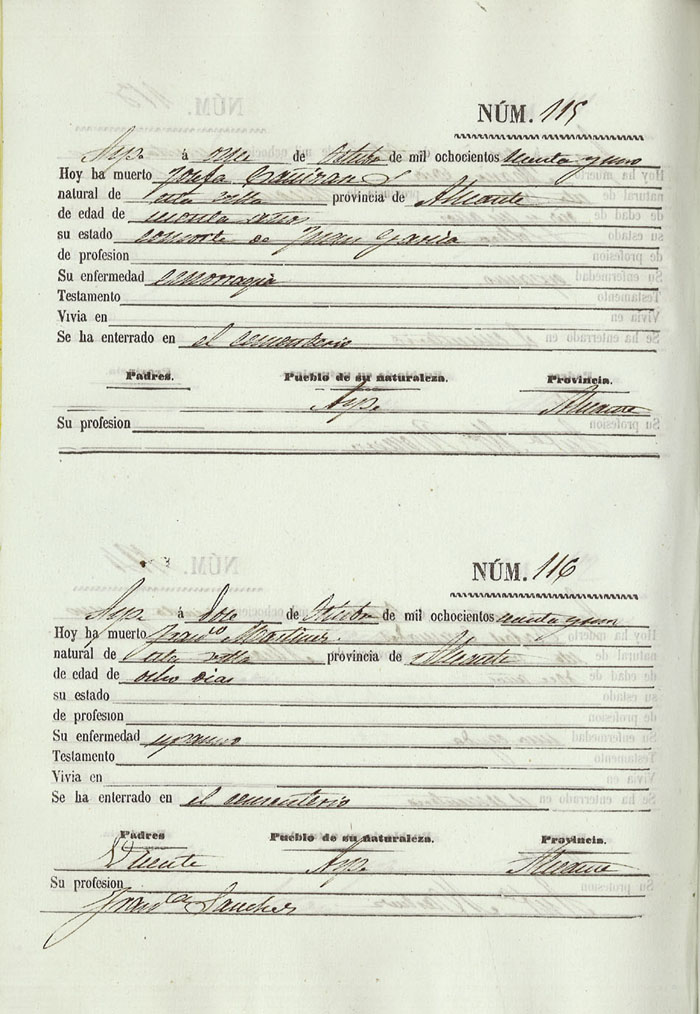 NÚM. 115
Aspe á once de Octubre de mil ochocientos sesenta y uno
Hoy ha muerto Josefa
natural de esta villa provincia de Alicante
de edad de años
su estado consorte de Juan Garcia
de profesion
Su enfermedad emorragia
Testamento
Vivia en
Se ha enterrado en el cementerio
Padres. Pueblo de su naturaleza. Provincia.
Aspe Alicante
Su profesion
NÚM. 116
Aspe á doce de Octubre de mil ochocientos sesenta y uno
Hoy ha muerto Franco Martinez
natural de esta villa provincia de Alicante
de edad de ocho dias
su estado
de profesion
Su enfermedad
Testamento
Vivia en
Se ha enterrado en el cementerio
Padres Pueblo de su naturaleza. Provincia.
Vicente Aspe Alicante
Su profesion
Franca Sanchez